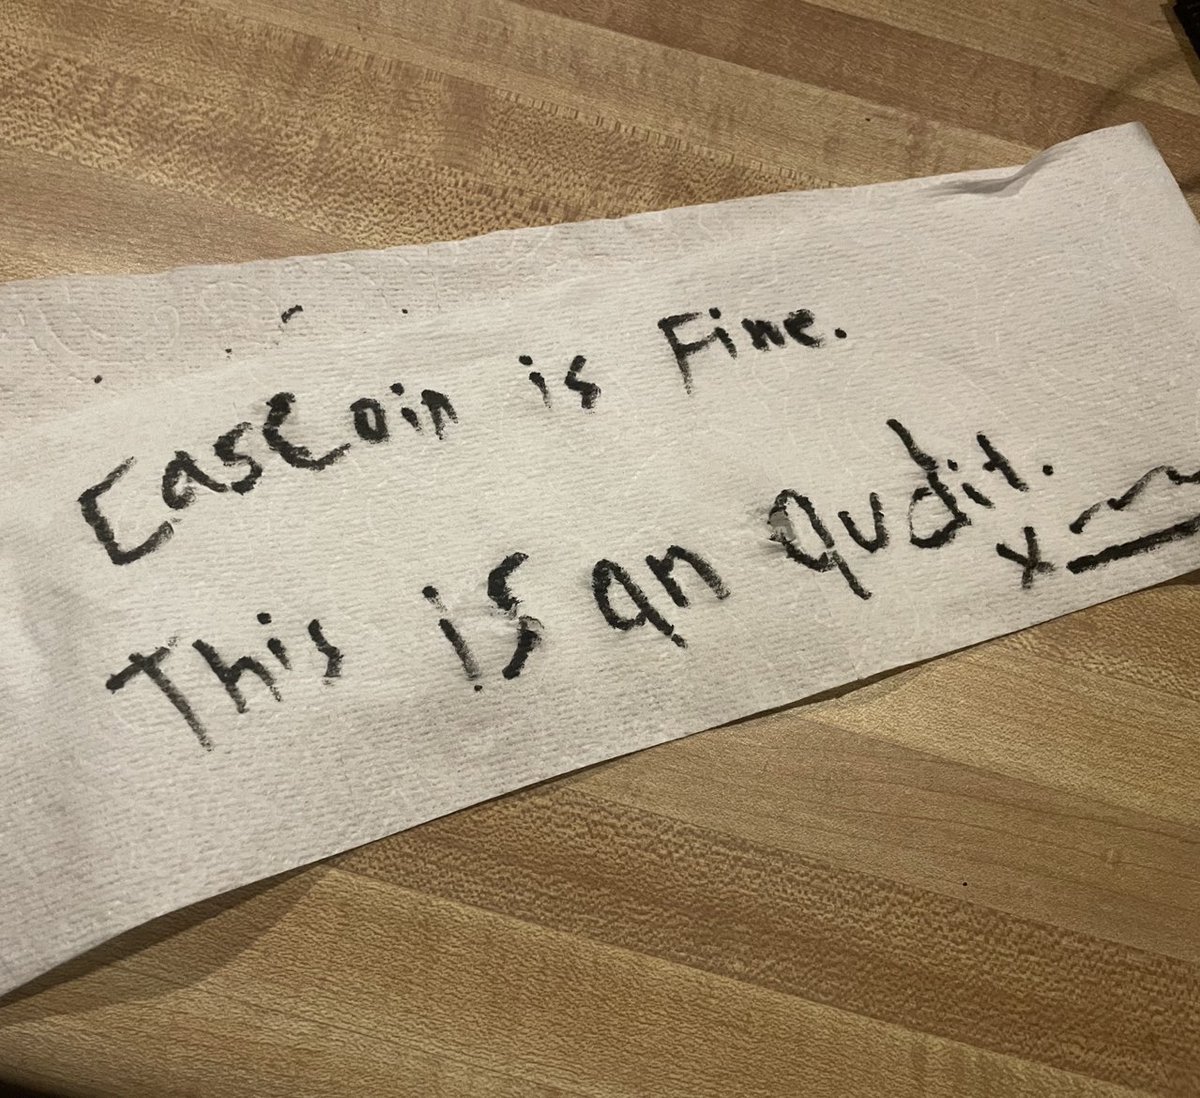 CasCoin is Fine.
This is an audit.
x